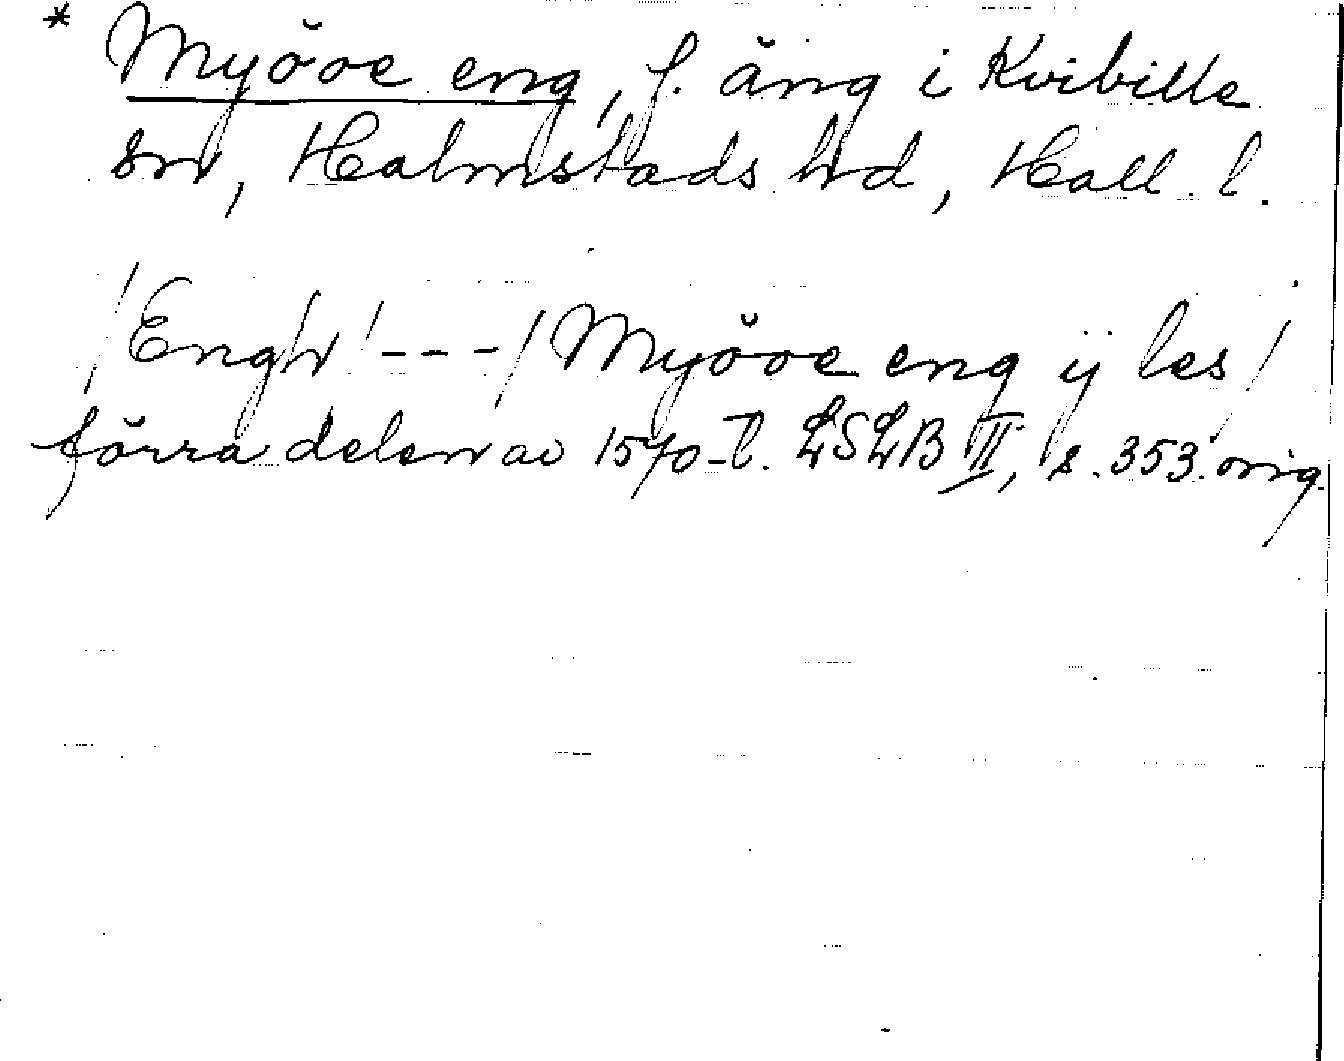 * Myöoe eng, f. äng i Kvibille
sn, Halmstads hd, Hall. l.
/Engh/ - - - / Myöoe eng ij les /
förra delen av 1570-t. LSLB II, s. 353. orig.